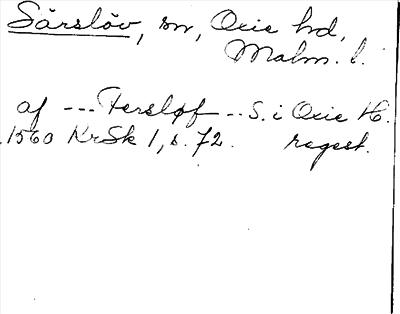 Särslöv, sn, Oxie hd,
Malm. l.
af --- Fersløf -- S. i Oxie H.
1560 KrSk 1, s. 72. regest.